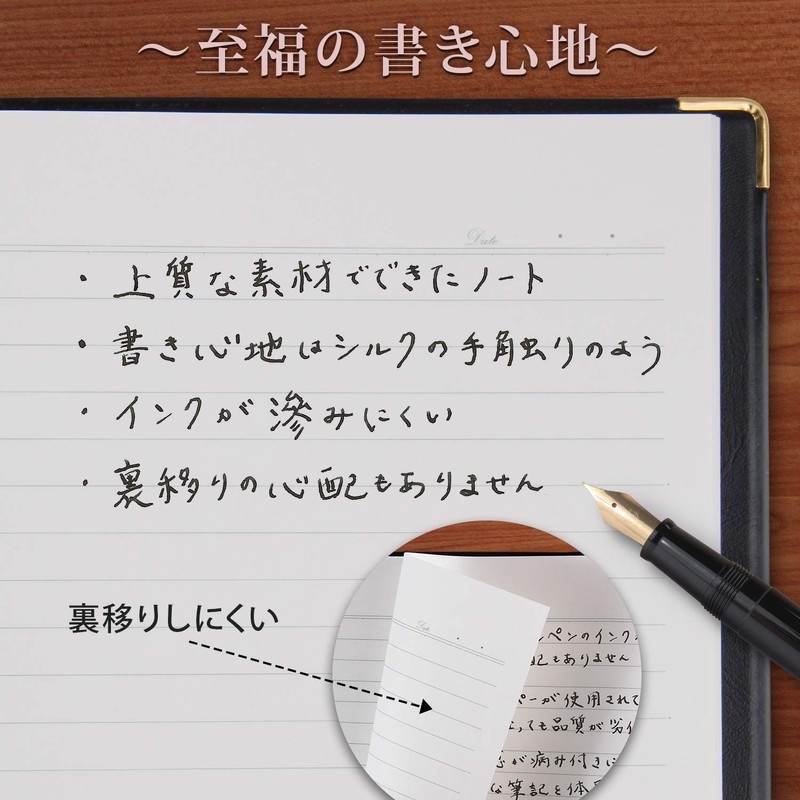 ～至福の書き心地～
Date
・上質な素材でできたノート
・書き心地はシルクの手触りのよう
・インクが滲みにくい
・裏移りの心配もありません
裏移りしにくい
Date
ペンのインク
配もありません
ペーが使用されて
ても品質が劣化
が病み付きに
な筆記を体